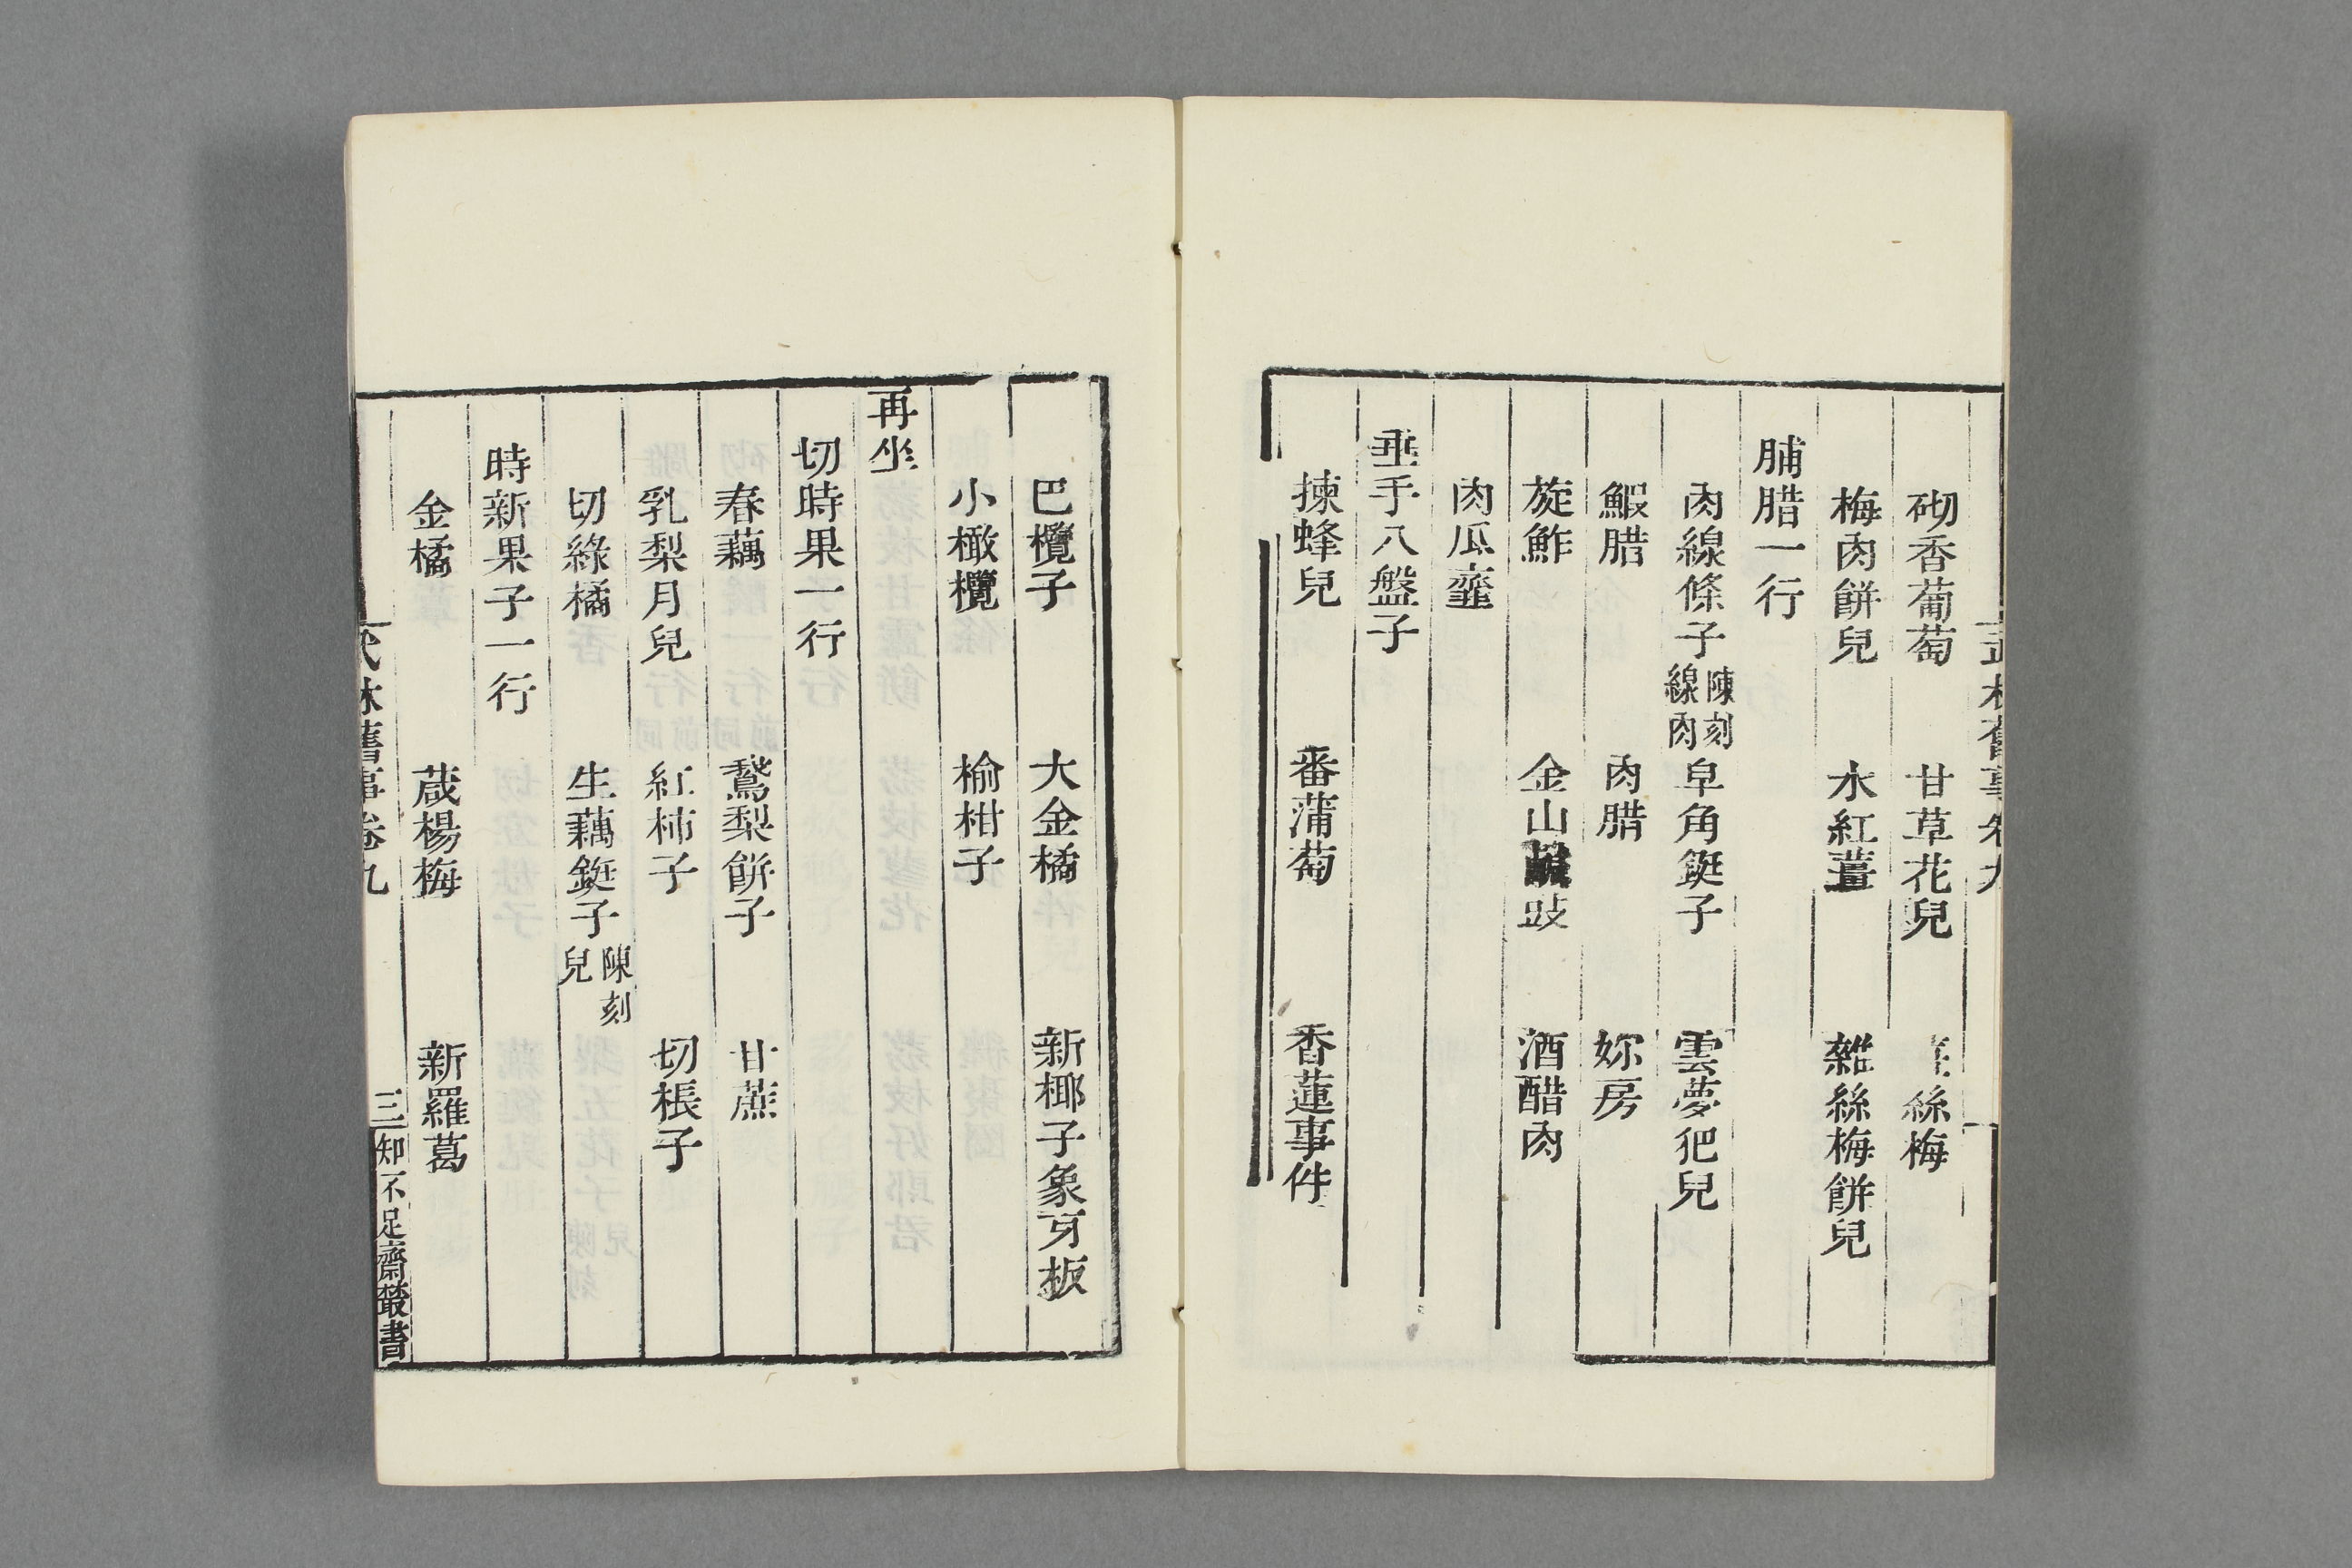 砌香葡萄 甘草花兒 絲梅
梅肉餅兒 水紅薑 雜絲梅餅兒
脯腊一行
肉線條子陳刻線肉 皁角鋌子 雲夢𤜶兒
鰕腊 肉腊 妳房
旋鮓 金山鹹豉 酒醋肉
肉瓜虀
垂手八盤子
揀蜂兒 番蒲萄 香蓮事件
巴欖子 大金橘 新椰子象牙板
小橄欖 榆柑子
再坐
切時果一行
春藕 鵞梨餅子 甘蔗
乳梨月兒 紅柿子 切棖子
切綠橘 生藕鋌子陳刻兒
時新果子一行
金橘 葴楊梅 新羅葛
林舊事卷九 三 知不足齋叢書